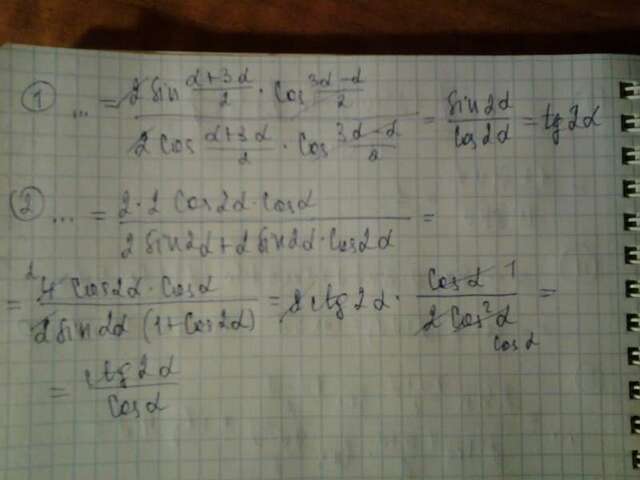 ① ... = 2 sin (α+3α)/2 · cos (3α-α)/2 / 2 cos (α+3α)/2 · cos (3α-α)/2 = sin 2α / cos 2α = tg 2α
② ... = 2·2 cos 2α · cos α / 2 sin 2α + 2 sin 2α · cos 2α =
= 4 cos 2α · cos α / 2 sin 2α (1 + cos 2α) = 2 ctg 2α · cos α / 2 cos² α =
= ctg 2α / cos α